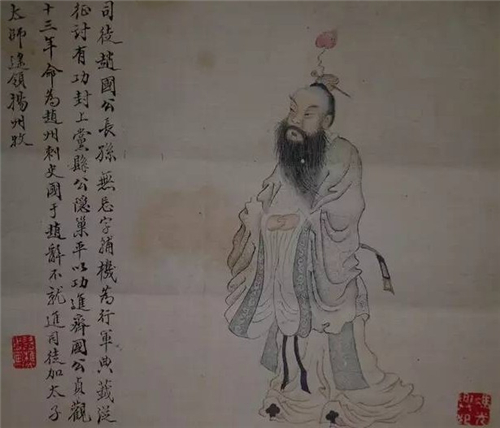 司徒趙國公長孫無忌字輔機為行軍典籤從
征討有功封上黨縣公隱巢平以功進齊國公貞觀
十三年命為趙州刺史國于趙辭不就進司徒加太子
太師遙領揚州牧